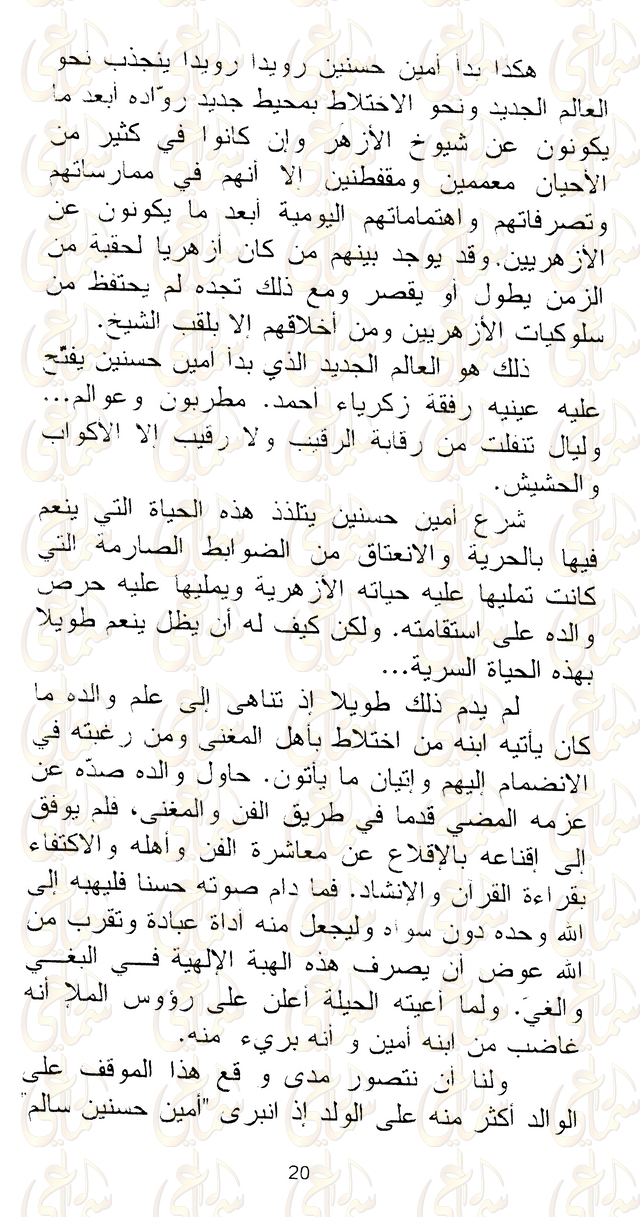 هكذا بدأ أمين حسنين رويدا رويدا ينجذب نحو
العالم الجديد ونحو الاختلاط بمحيط جديد روّاده أبعد ما
يكونون عن شيوخ الأزهر وإن كانوا في كثير من
الأحيان معممين ومقفطنين إلا أنهم في ممارساتهم
وتصرفاتهم واهتماماتهم اليومية أبعد ما يكونون عن
الأزهريين.وقد يوجد بينهم من كان أزهريا لحقبة من
الزمن يطول أو يقصر ومع ذلك تجده لم يحتفظ من
سلوكيات الأزهريين ومن أخلاقهم إلا بلقب الشيخ.
ذلك هو العالم الجديد الذي بدأ أمين حسنين يفتّح
عليه عينيه رفقة زكرياء أحمد. مطربون وعوالم...
وليال تنفلت من رقابة الرقيب ولا رقيب إلا الأكواب
والحشيش.
شرع أمين حسنين يتلذذ هذه الحياة التي ينعم
فيها بالحرية والانعتاق من الضوابط الصارمة التي
كانت تمليها عليه حياته الأزهرية ويمليها عليه حرص
والده على استقامته. ولكن كيف له أن يظل ينعم طويلا
بهذه الحياة السرية...
لم يدم ذلك طويلا إذ تناهى إلى علم والده ما
كان يأتيه ابنه من اختلاط بأهل المغنى ومن رغبته في
الانضمام إليهم وإتيان ما يأتون. حاول والده صدّه عن
عزمه المضي قدما في طريق الفن والمغنى، فلم يوفق
إلى إقناعه بالإقلاع عن معاشرة الفن وأهله والاكتفاء
بقراءة القرآن والإنشاد. فما دام صوته حسنا فليهبه إلى
الله وحده دون سواه وليجعل منه أداة عبادة وتقرب من
الله عوض أن يصرف هذه الهبة الإلهية فـــي البغـــي
والغيّ. ولما أعيته الحيلة أعلن على رؤوس الملإ أنه
غاضب من ابنه أمين و أنه بريء منه.
ولنا أن نتصور مدى و قع هذا الموقف على
الوالد أكثر منه على الولد إذ انبرى "أمين حسنين سالم"
20